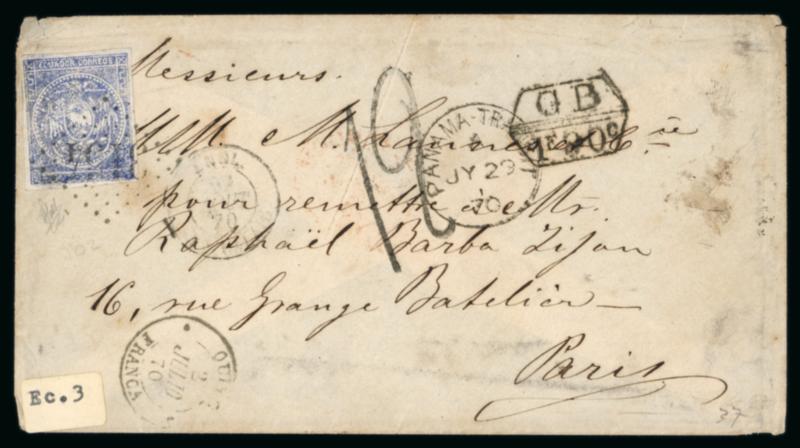 ECUADOR CORREOS
Messieurs.
MM. M. & Cie
pour remettre à Mr.
Raphaël Barba Jijon
16, rue Grange Batelière
Paris
PANAMA-TR
A
JY 29
70
GB
1F 90c
ANGL.
70
QUITO
2
JULIO
70
FRANCA
Ec.3
37